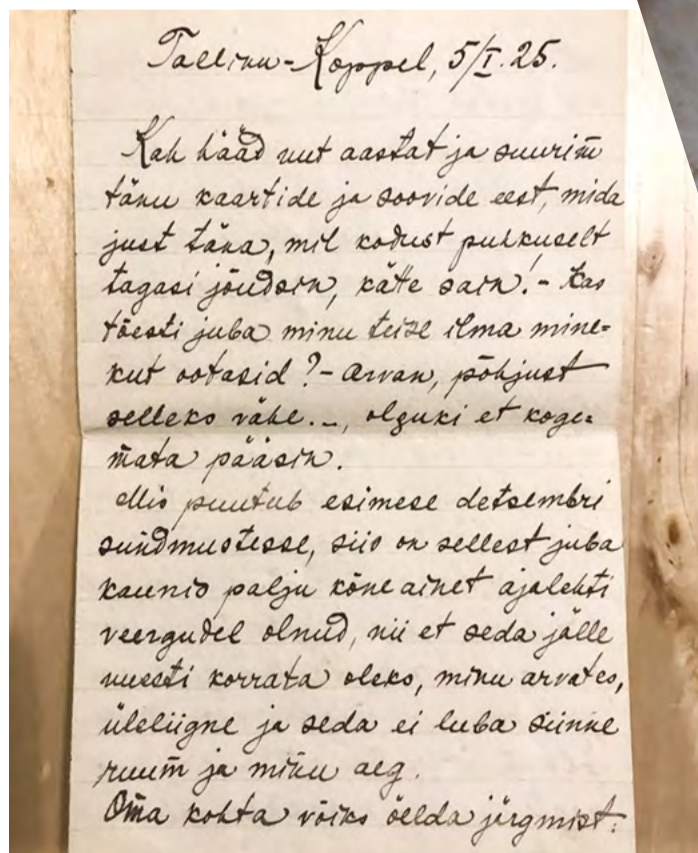 Tallinn-Koppel, 5/I.25.
Kah hääd uut aastat ja suurim
tänu kaartide ja soovide eest, mida
just täna, mil kodust puhkuselt
tagasi jõudsin, kätte sain! - Kas
tõesti juba minu teise ilma mine=
kut ootasid? - Arvan, põhjust
selleks vähe. -, olguki et koge=
mata pääsin.
Mis puutub esimese detsembri
sündmustesse, siis on sellest juba
kaunis palju kõneainet ajalehti
veergudel olnud, nii et seda jälle
uuesti korrata oleks, minu arvates,
üleliigne ja seda ei luba siinne
ruum ja minu aeg.
Oma kohta võiks öelda järgmist: